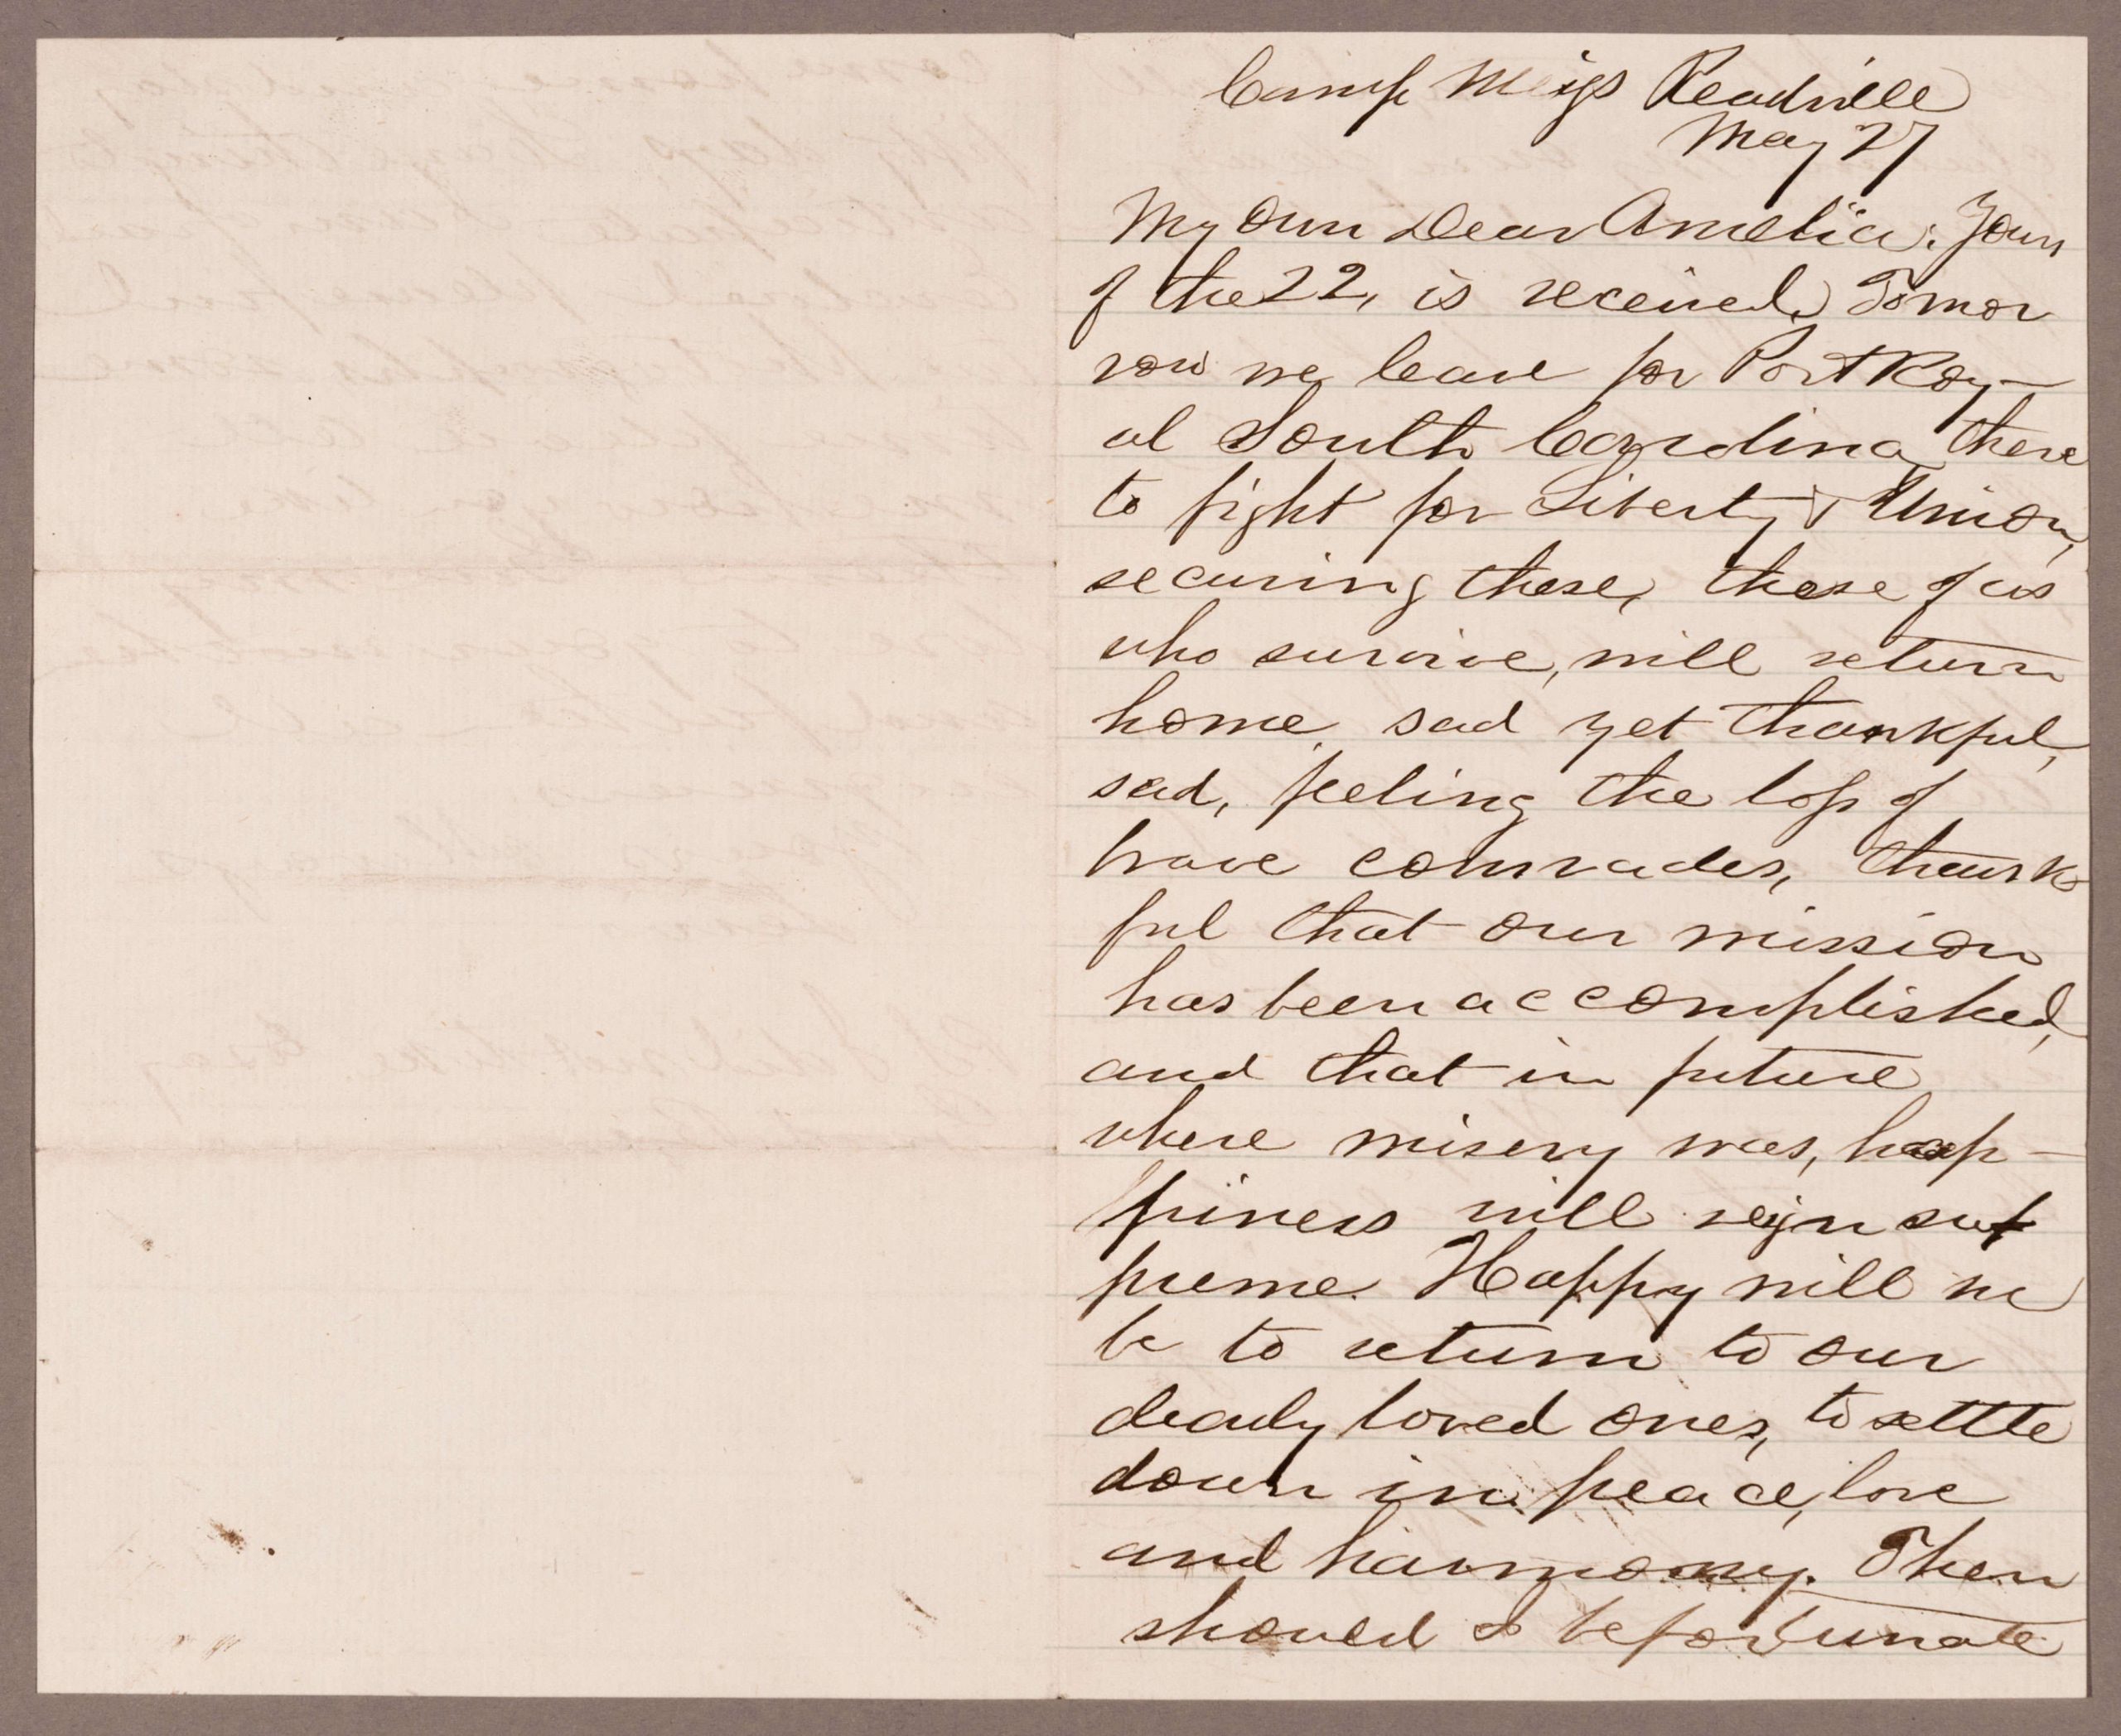 Camp Meigs Readville
May 27
My Own Dear Amelia: Yours
of the 22, is received. Tomor
row we leave for Port Roy-
al South Carolina, there
to fight for Liberty & Union,
securing these, those of us
who survive, will return
home sad yet thankful,
sad, feeling the loss of
brave comrades, thank
ful that our mission
has been accomplished,
and that in future
where misery was, hap-
piness will reign su
preme. Happy will we
be to return to our
dearly loved ones, to settle
down in peace, love
and harmony. Then
should I be fortunate